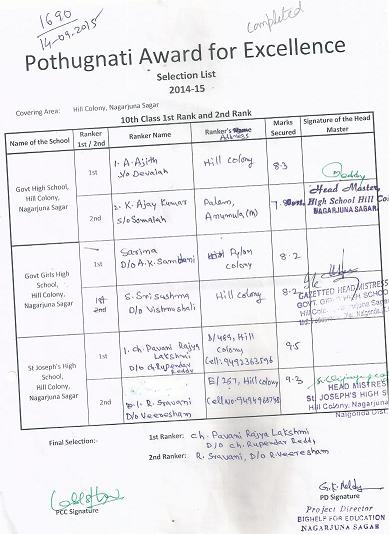 1690
14-09-2015
completed
Pothugnati Award for Excellence
Selection List
2014-15
Covering Area: Hill Colony, Nagarjuna Sagar
10th Class 1st Rank and 2nd Rank
Name of the School
Ranker 1st / 2nd
Ranker Name
Ranker's Name Address
Marks Secured
Signature of the Head Master
Govt High School,
Hill Colony,
Nagarjuna Sagar
1st
1. A. Ajith
S/o Devaiah
Hill colony
8.3
Reddy
2nd
2. K. Ajay Kumar
S/o Somaiah
Palem,
Anumula (m)
Head Master,
High School Hill Co
NAGARJUNA SAGAR.
Govt Girls High
School,
Hill Colony,
Nagarjuna Sagar
1st
Sarina
D/o A.K. Samdani
Pylon
colony
8.2
1st
2nd
S. Sri sushma
D/o Vishnushali
Hill colony
8.2
GAZETTED HEAD MISTRESS
GOVT. GIRLS HIGH SCHOOL
St Joseph's High
School,
Hill Colony,
Nagarjuna Sagar
1st
1. ch. Pavani Rajya
Lakshmi
D/o ch. Rupendar
Reddy
B/489, Hill
colony
Cell: 9492363596
9.5
2nd
R. Sravani
D/o Veeresham
E/267, Hill colony
Cell No:
9.3
HEAD MISTRES
St. JOSEPH'S HIGH S
Hill Colony, Nagarjuna
Nalgonda Dist.
Final Selection:
1st Ranker: ch. Pavani Rajya Lakshmi
D/o ch. Rupendar Reddy
2nd Ranker: R. Sravani, D/o R. Veeresham
PCC Signature
G.K. Reddy
PD Signature
Project Director
BIGHELP FOR EDUCATION
NAGARJUNA SAGAR